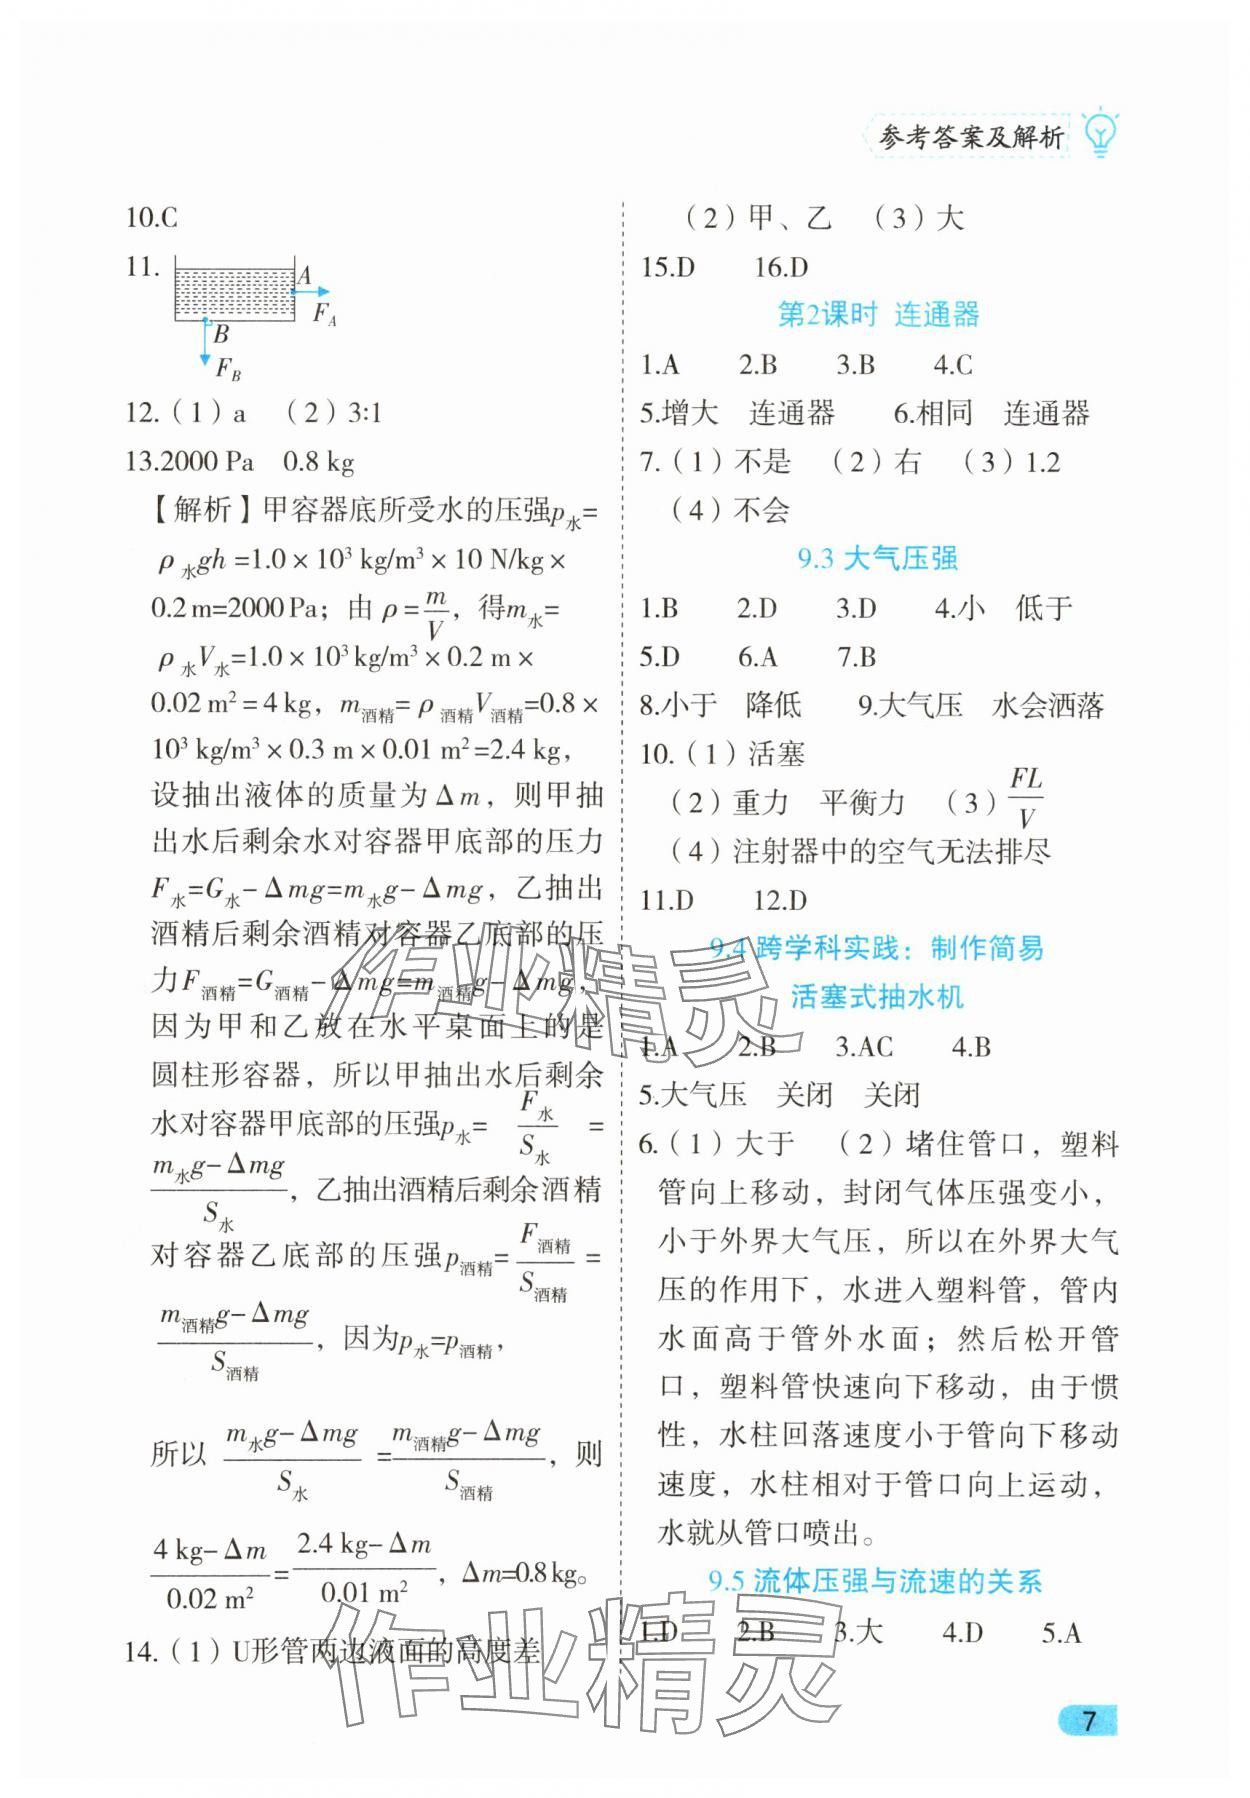 参考答案及解析
10.C
11.
A
F_A
B
F_B
12.（1）a （2）3∶1
13.2000 Pa 0.8 kg
【解析】甲容器底所受水的压强p水=
ρ水gh=1.0×10³ kg/m³×10 N/kg×
0.2 m=2000 Pa；由ρ=m/V，得m水=
ρ水V水=1.0×10³ kg/m³×0.2 m×
0.02 m²=4 kg，m酒精=ρ酒精V酒精=0.8×
10³ kg/m³×0.3 m×0.01 m²=2.4 kg，
设抽出液体的质量为Δm，则甲抽
出水后剩余水对容器甲底部的压力
F水=G水-Δmg=m水g-Δmg，乙抽出
酒精后剩余酒精对容器乙底部的压
力F酒精=G酒精-Δmg=m酒精g-Δmg，
因为甲和乙放在水平桌面上的是
圆柱形容器，所以甲抽出水后剩余
水对容器甲底部的压强p水=F水/S水=
(m水g-Δmg)/S水，乙抽出酒精后剩余酒精
对容器乙底部的压强p酒精=F酒精/S酒精=
(m酒精g-Δmg)/S酒精，因为p水=p酒精，
所以(m水g-Δmg)/S水=(m酒精g-Δmg)/S酒精，则
(4 kg-Δm)/0.02 m²=(2.4 kg-Δm)/0.01 m²，Δm=0.8 kg。
14.（1）U形管两边液面的高度差
（2）甲、乙 （3）大
15.D 16.D
第2课时 连通器
1.A 2.B 3.B 4.C
5.增大 连通器 6.相同 连通器
7.（1）不是 （2）右 （3）1.2
（4）不会
9.3 大气压强
1.B 2.D 3.D 4.小 低于
5.D 6.A 7.B
8.小于 降低 9.大气压 水会洒落
10.（1）活塞
（2）重力 平衡力 （3）FL/V
（4）注射器中的空气无法排尽
11.D 12.D
9.4 跨学科实践：制作简易
活塞式抽水机
1.A 2.B 3.AC 4.B
5.大气压 关闭 关闭
6.（1）大于 （2）堵住管口，塑料
管向上移动，封闭气体压强变小，
小于外界大气压，所以在外界大气
压的作用下，水进入塑料管，管内
水面高于管外水面；然后松开管
口，塑料管快速向下移动，由于惯
性，水柱回落速度小于管向下移动
速度，水柱相对于管口向上运动，
水就从管口喷出。
9.5 流体压强与流速的关系
1.D 2.B 3.大 4.D 5.A
作业精灵
作业精灵
7